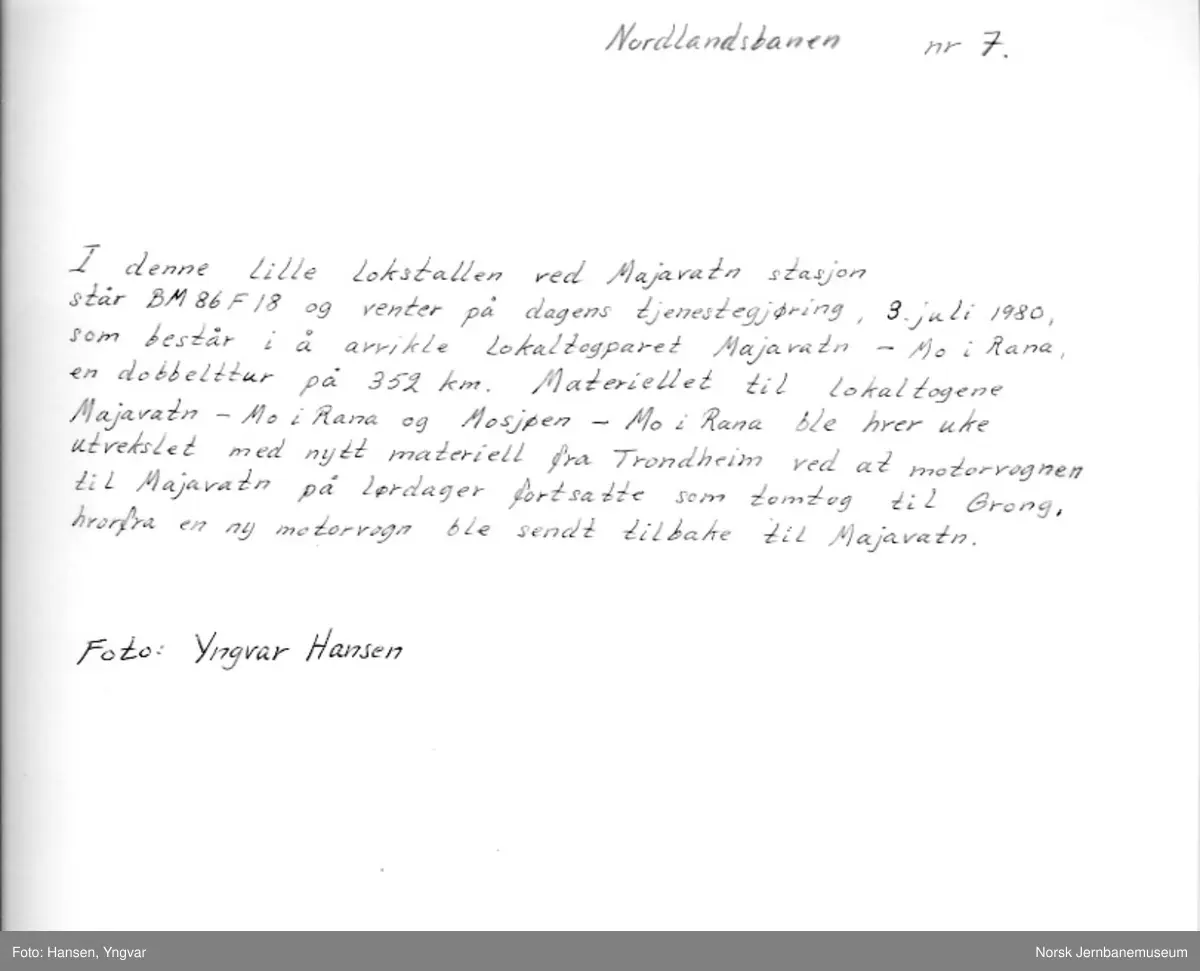 Nordlandsbanen nr 7.
I denne lille lokstallen ved Majavatn stasjon
står BM 86 F 18 og venter på dagens tjenestegjøring, 3. juli 1980,
som består i å avvikle lokaltogparet Majavatn – Mo i Rana,
en dobbelttur på 352 km. Materiellet til lokaltogene
Majavatn – Mo i Rana og Mosjøen – Mo i Rana ble hver uke
utvekslet med nytt materiell fra Trondheim ved at motorvognen
til Majavatn på lørdager fortsatte som tomtog til Grong,
hvorfra en ny motorvogn ble sendt tilbake til Majavatn.
Foto: Yngvar Hansen
Foto: Hansen, Yngvar
Norsk Jernbanemuseum